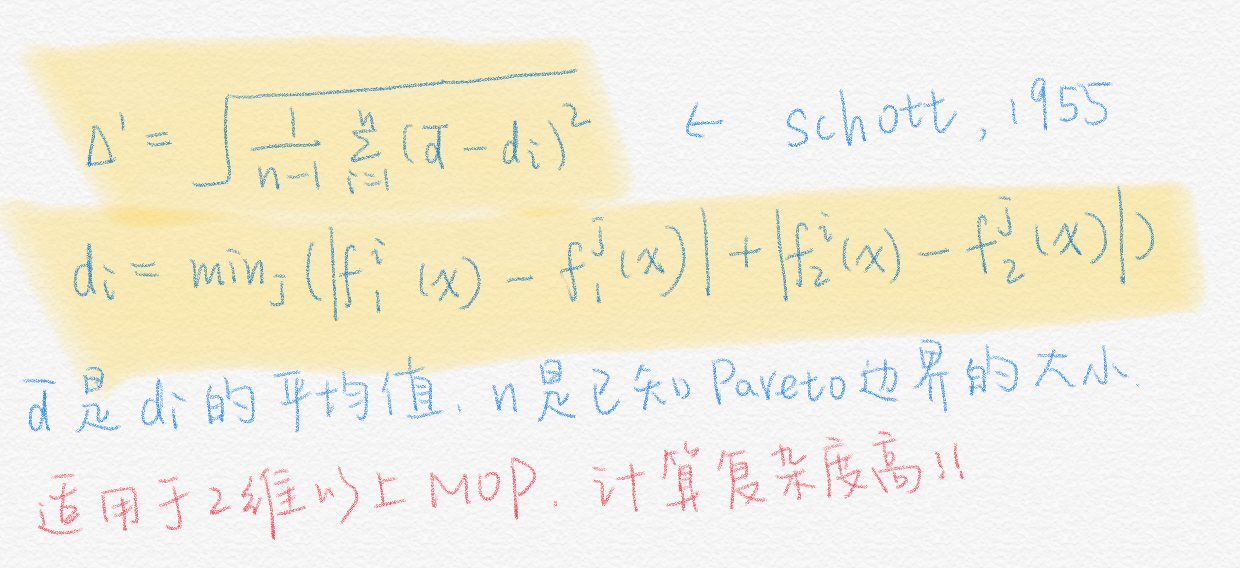 Δ' = √(1/(n-1) Σ_{i=1}^{n} (d̅ - di)²) ← schott, 1955
di = min_j (|f₁ⁱ(x) - f₁ʲ(x)| + |f₂ⁱ(x) - f₂ʲ(x)|)
d̅是di的平均值. n是已知Pareto边界的大小.
适用于2维以上MOP. 计算复杂度高!!